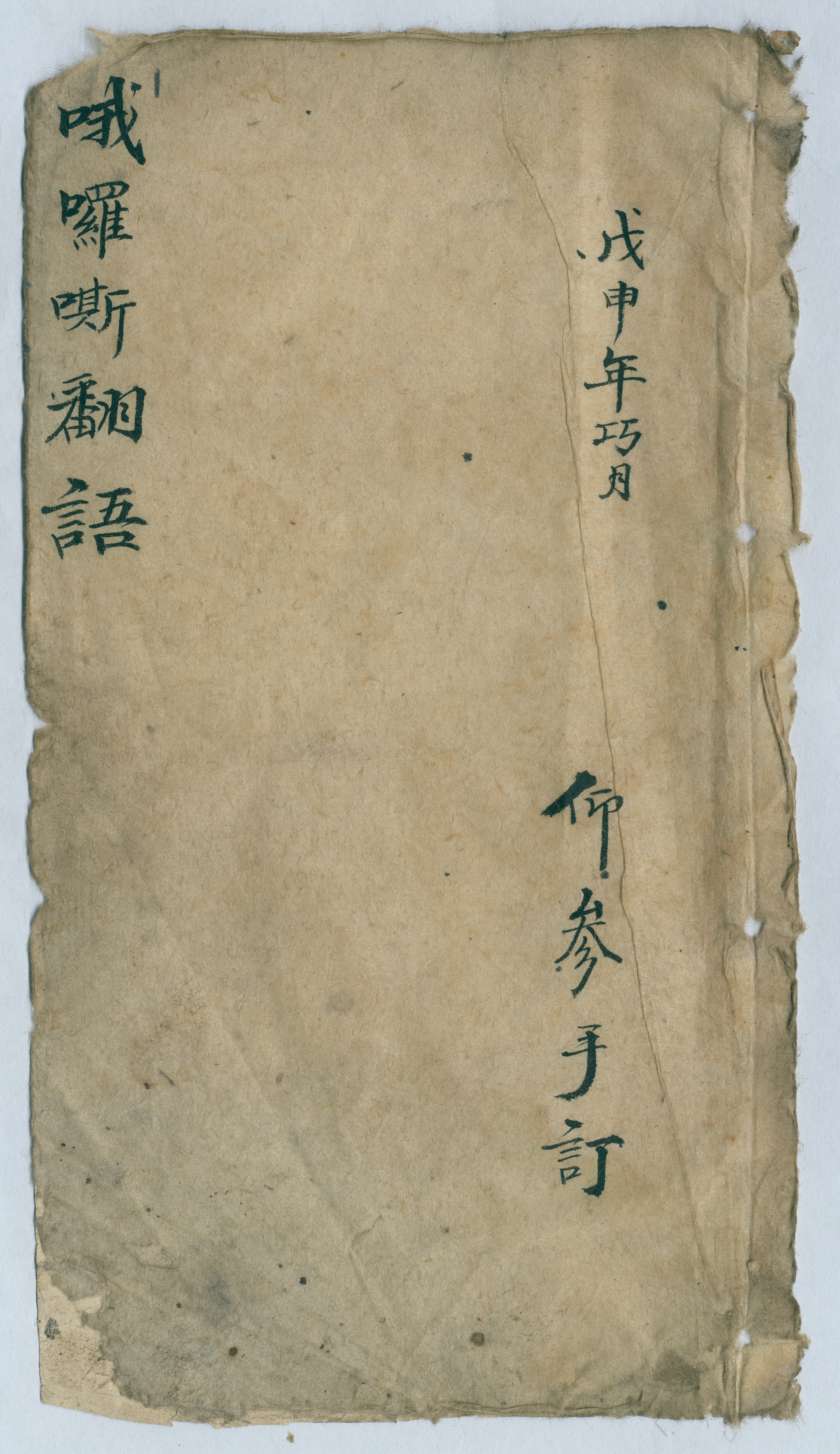 戊申年巧月
仰参手訂
哦囉嘶翻語